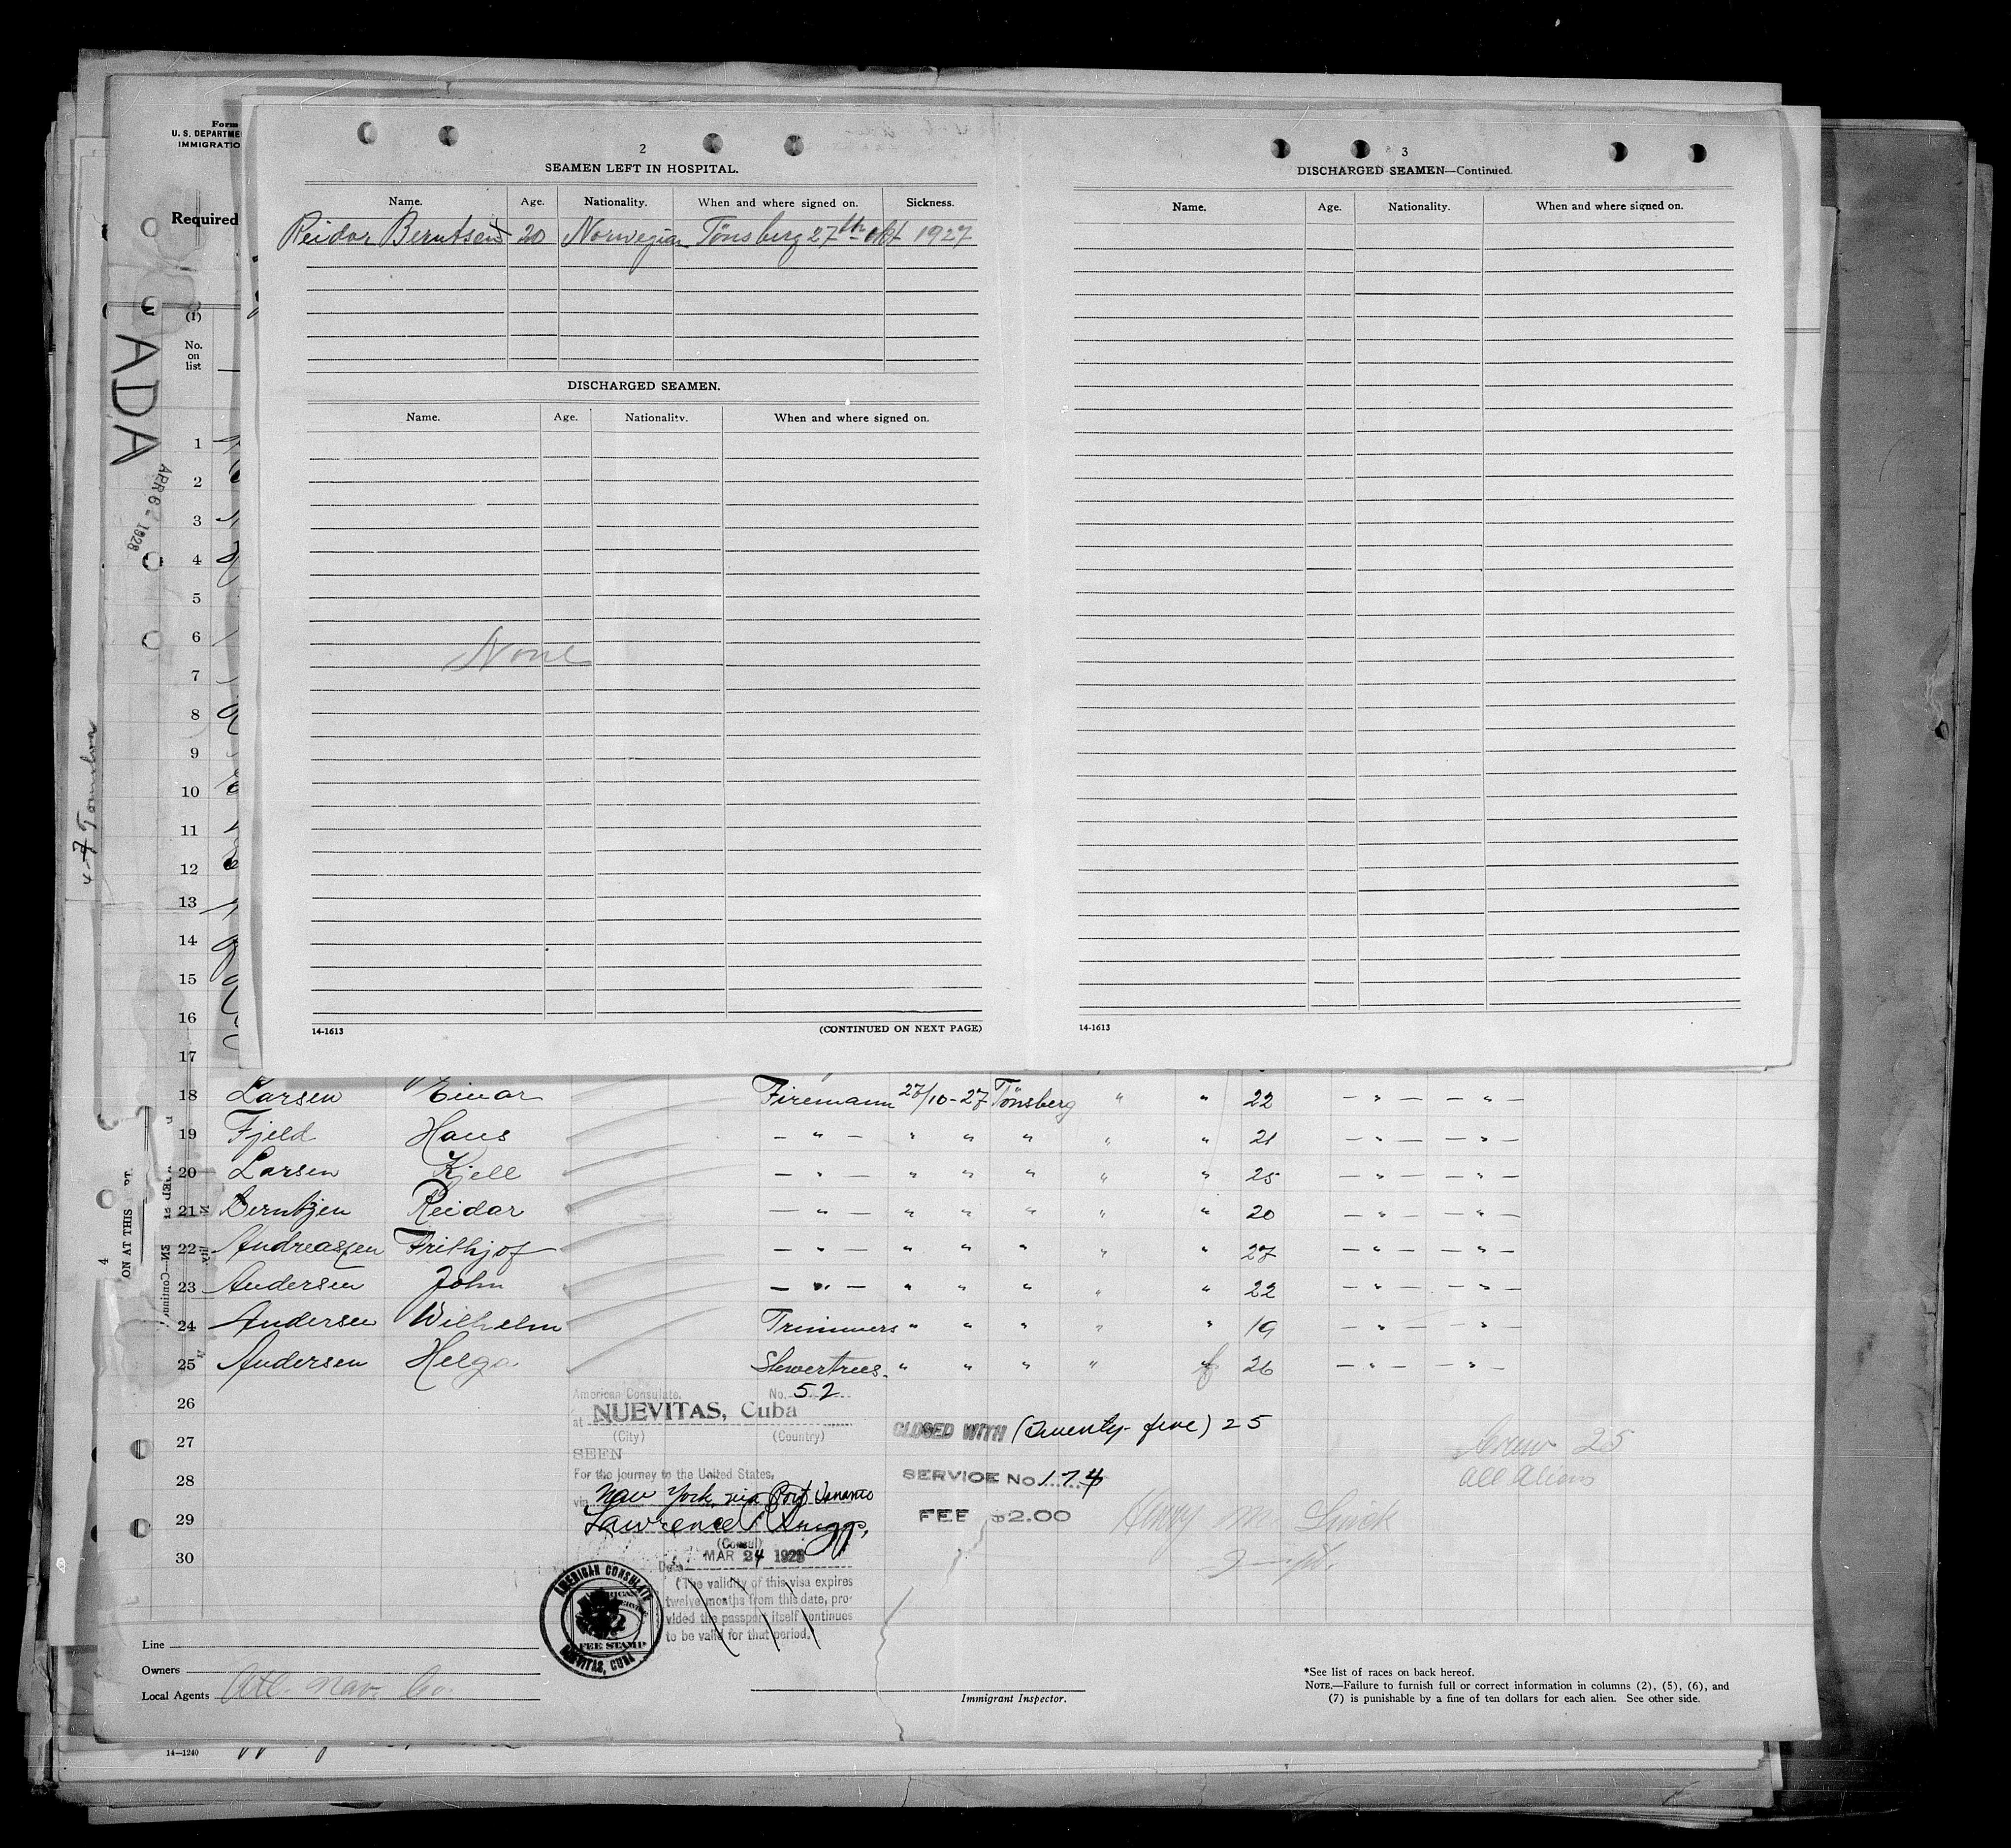 Form
U. S. DEPARTME
IMMIGRATIO
Required
(1)
No.
on
list
ADA
APR 6 - 1928
2
SEAMEN LEFT IN HOSPITAL.
Name. Age. Nationality. When and where signed on. Sickness.
Reidar Berntsen 20 Norwegian Tönsberg 27th okt 1927
DISCHARGED SEAMEN.
Name. Age. Nationality. When and where signed on.
None
14-1613 (CONTINUED ON NEXT PAGE)
3
DISCHARGED SEAMEN—Continued.
Name. Age. Nationality. When and where signed on.
14-1613
1
2
3
4
5
6
7
8
9
10
11
12
13
14
15
16
17
18 Larsen Einar Firemann 27/10-27 Tönsberg " " 22 — " — — " —
19 Fjeld Hans — " — " " " " " 21 — " — — " —
20 Larsen Kjell — " — " " " " " 25 — " — — " —
21 Berntzen Reidar — " — " " " " " 20 — " — — " —
22 Andreassen Frithjof — " — " " " " " 27 — " — — " —
23 Andersen John — " — " " " " " 22 — " — — " —
24 Andersen Wilhelm Trimmers " " " " " 19 — " — — " —
25 Andersen Helga Stewertrees. " " " " f 26 — " — — " —
26
27
28
29
30
American Consulate, No. 52
at NUEVITAS, Cuba
(City) (Country)
SEEN
For the journey to the United States,
via New York via Port
Lawrence Briggs,
(Consul)
Date MAR 24 1928
(The validity of this visa expires
twelve months from this date, pro-
vided the passport itself continues
to be valid for that period.)
AMERICAN CONSULATE
FEE STAMP
NUEVITAS, CUBA
CLOSED WITH (Twenty-five) 25
SERVICE No. 174
FEE $2.00
Crew 25
all aliens
Henry M.
ON AT THIS
Line
Owners
Local Agents Atl. Nav. Co.
Immigrant Inspector.
*See list of races on back hereof.
NOTE.—Failure to furnish full or correct information in columns (2), (5), (6), and
(7) is punishable by a fine of ten dollars for each alien. See other side.
14—1240